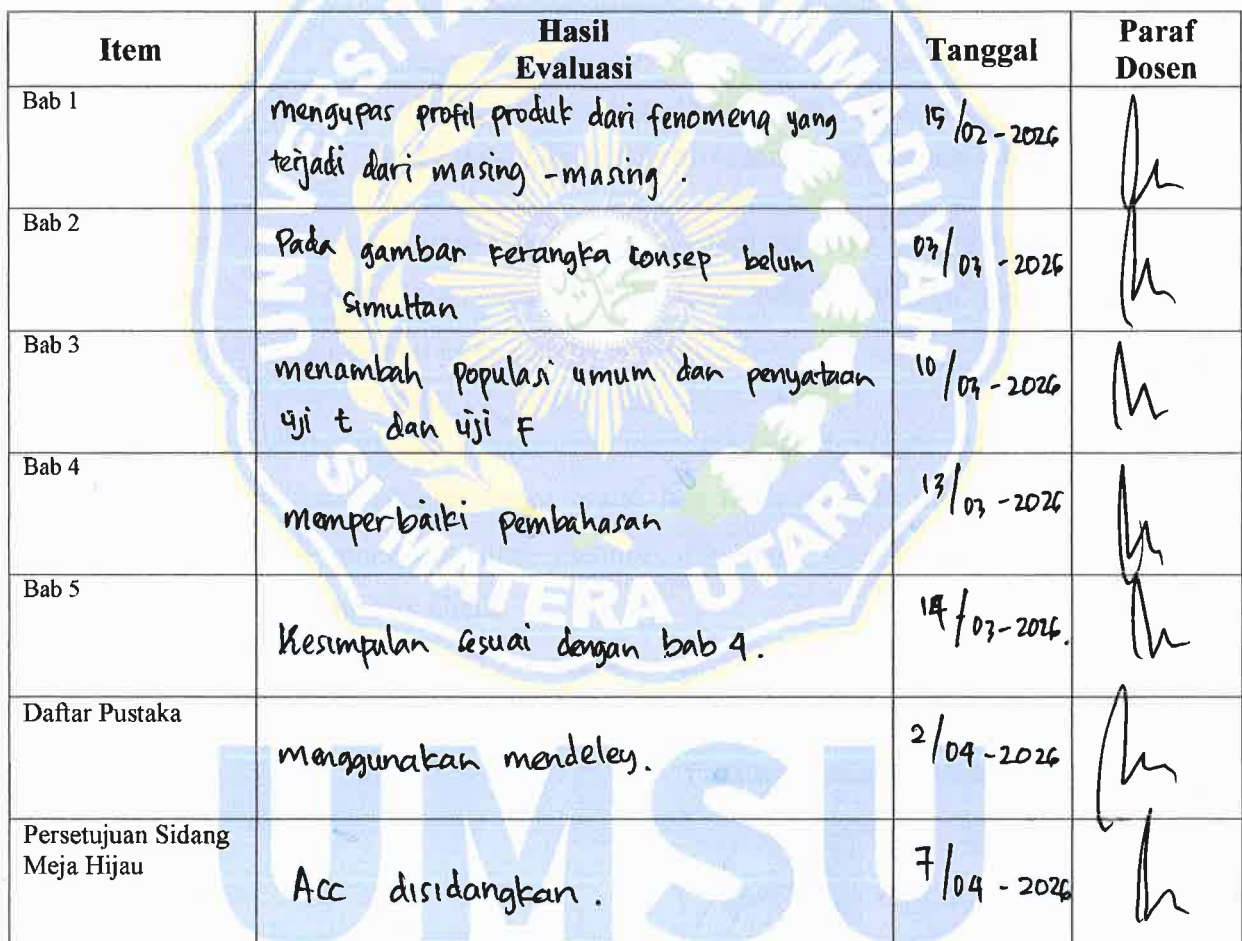 Item
Hasil
Evaluasi
Tanggal
Paraf
Dosen
Bab 1
mengupas profil produk dari fenomena yang
terjadi dari masing - masing .
15/02-2026
Bab 2
Pada gambar kerangka konsep belum
simultan
03/03-2026
Bab 3
menambah populasi umum dan penyataan
uji t dan uji F
10/03-2026
Bab 4
memperbaiki pembahasan
13/03-2026
Bab 5
Kesimpulan sesuai dengan bab 4.
14/03-2026.
Daftar Pustaka
menggunakan mendeley.
2/04-2026
Persetujuan Sidang
Meja Hijau
Acc disidangkan.
7/04-2026
UNIVERSITAS MUHAMMADIYAH
SUMATERA UTARA
UMSU